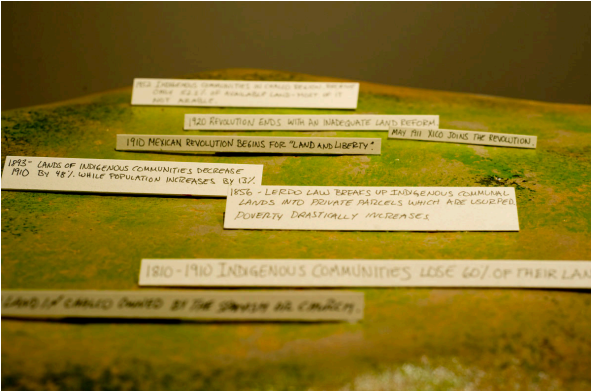 INDIGENOUS COMMUNITIES IN CHALCO REGION
ONLY OF AVAILABLE LAND - MOST OF IT
NOT ARABLE.
1920 REVOLUTION ENDS WITH AN INADEQUATE LAND REFORM
MAY 1911 XICO JOINS THE REVOLUTION
1910 MEXICAN REVOLUTION BEGINS FOR "LAND AND LIBERTY".
1893- LANDS OF INDIGENOUS COMMUNITIES DECREASE
1910 BY 48% WHILE POPULATION INCREASES BY 13%.
1856 - LERDO LAW BREAKS UP INDIGENOUS COMMUNAL
LANDS INTO PRIVATE PARCELS WHICH ARE USURPED.
POVERTY DRASTICALLY INCREASES
1810-1910 INDIGENOUS COMMUNITIES LOSE 60% OF THEIR LAN
LAND IN CHALCO OWNED BY THE SPANISH OR CHURCH.